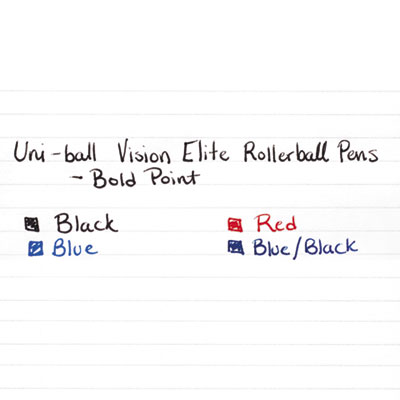 Uni-ball Vision Elite Rollerball Pens
- Bold Point
Black
Red
Blue
Blue/Black